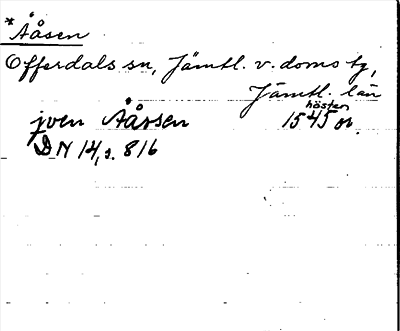 * Åsen
Offerdals sn, Jämtl. v. doms tg,
Jämtl. län
hösten
jven Åårsen 1545 or.
DN 14, s. 816